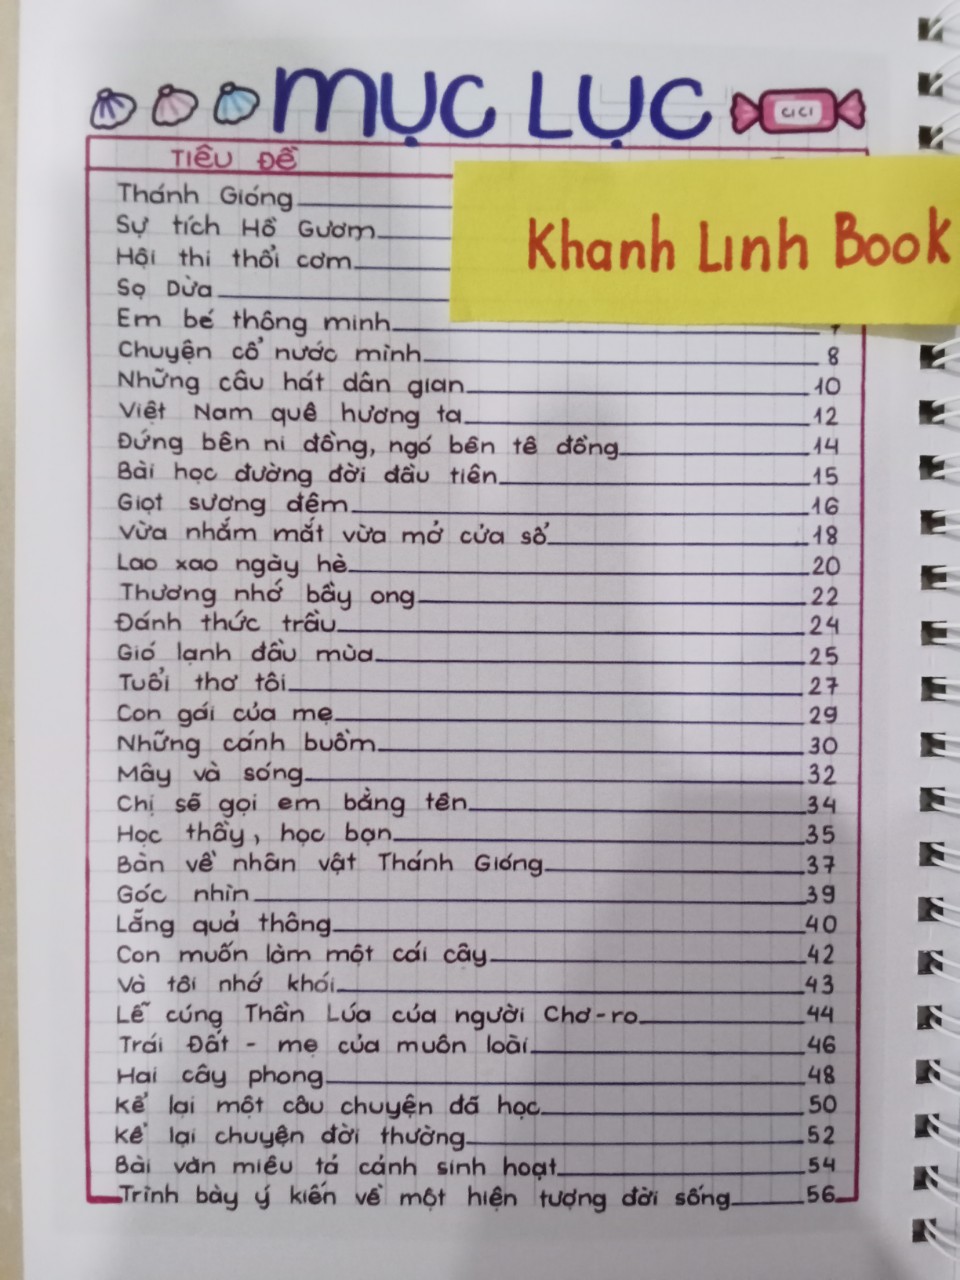 MỤC LỤC
CICI
TIÊU ĐỀ
Khanh Linh Book
Thánh Gióng
Sự tích Hồ Gươm
Hội thi thổi cơm
Sọ Dừa
Em bé thông minh
Chuyện cổ nước mình 8
Những câu hát dân gian 10
Việt Nam quê hương ta 12
Đứng bên ni đồng, ngó bên tê đồng 14
Bài học đường đời đầu tiên 15
Giọt sương đêm 16
Vừa nhắm mắt vừa mở cửa sổ 18
Lao xao ngày hè 20
Thương nhớ bầy ong 22
Đánh thức trầu 24
Gió lạnh đầu mùa 25
Tuổi thơ tôi 27
Con gái của mẹ 29
Những cánh buồm 30
Mây và sóng 32
Chị sẽ gọi em bằng tên 34
Học thầy, học bạn 35
Bàn về nhân vật Thánh Gióng 37
Góc nhìn 39
Lẵng quả thông 40
Con muốn làm một cái cây 42
Và tôi nhớ khói 43
Lễ cúng Thần Lúa của người Chơ-ro 44
Trái Đất - mẹ của muôn loài 46
Hai cây phong 48
Kể lại một câu chuyện đã học 50
Kể lại chuyện đời thường 52
Bài văn miêu tả cảnh sinh hoạt 54
Trình bày ý kiến về một hiện tượng đời sống 56